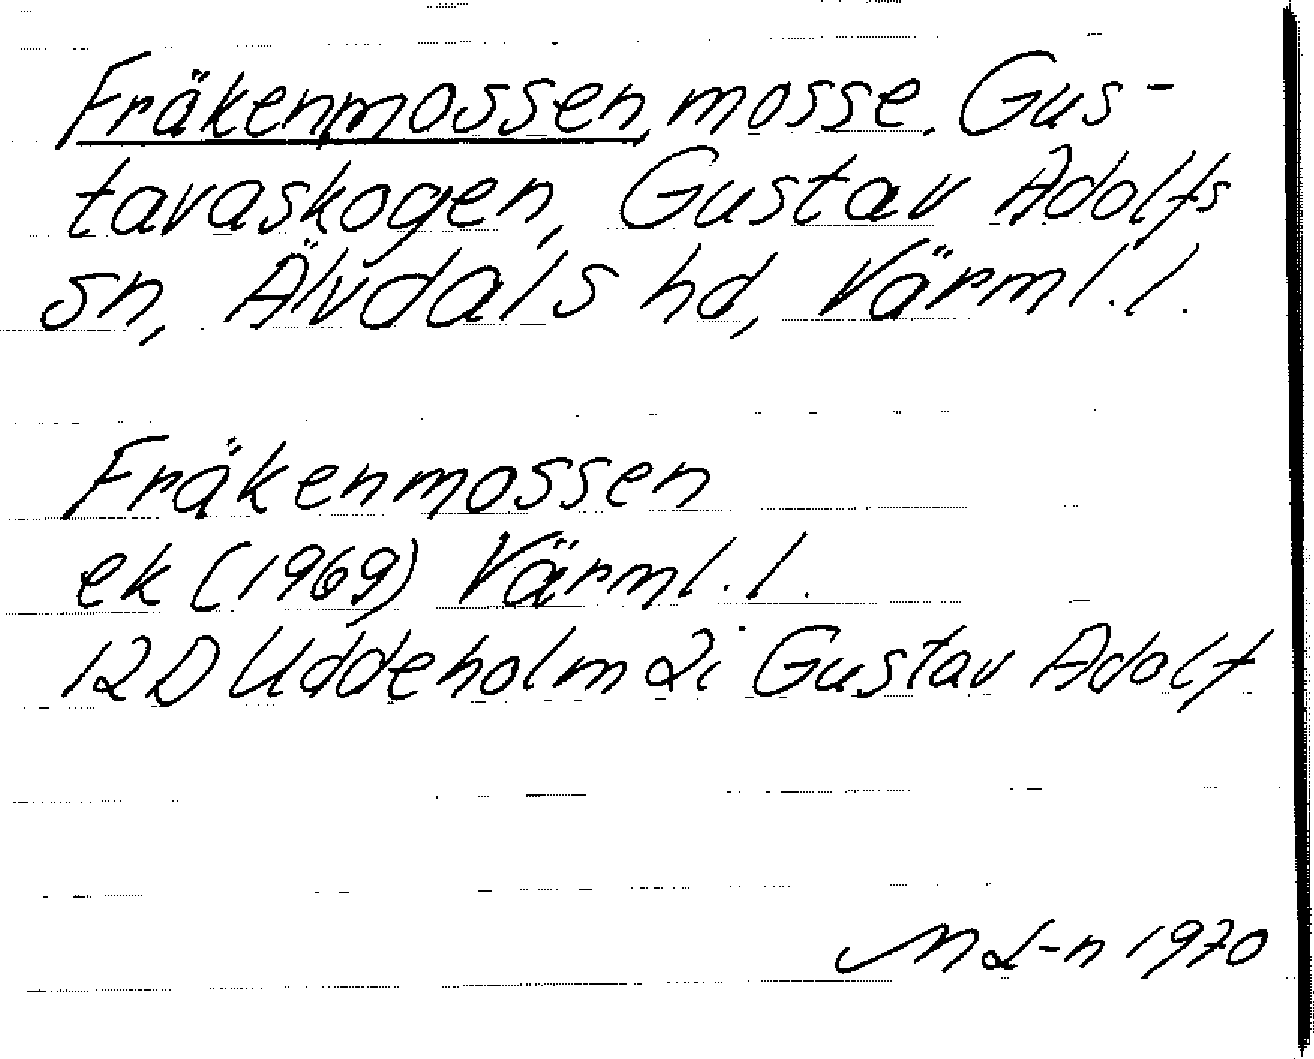 Fräkenmossen, mosse. Gus-
tavaskogen, Gustav Adolfs
sn, Älvdals hd, Värml. l.
Fräkenmossen
ek (1969) Värml. l.
12D Uddeholm 2i Gustav Adolf
M L-n 1970